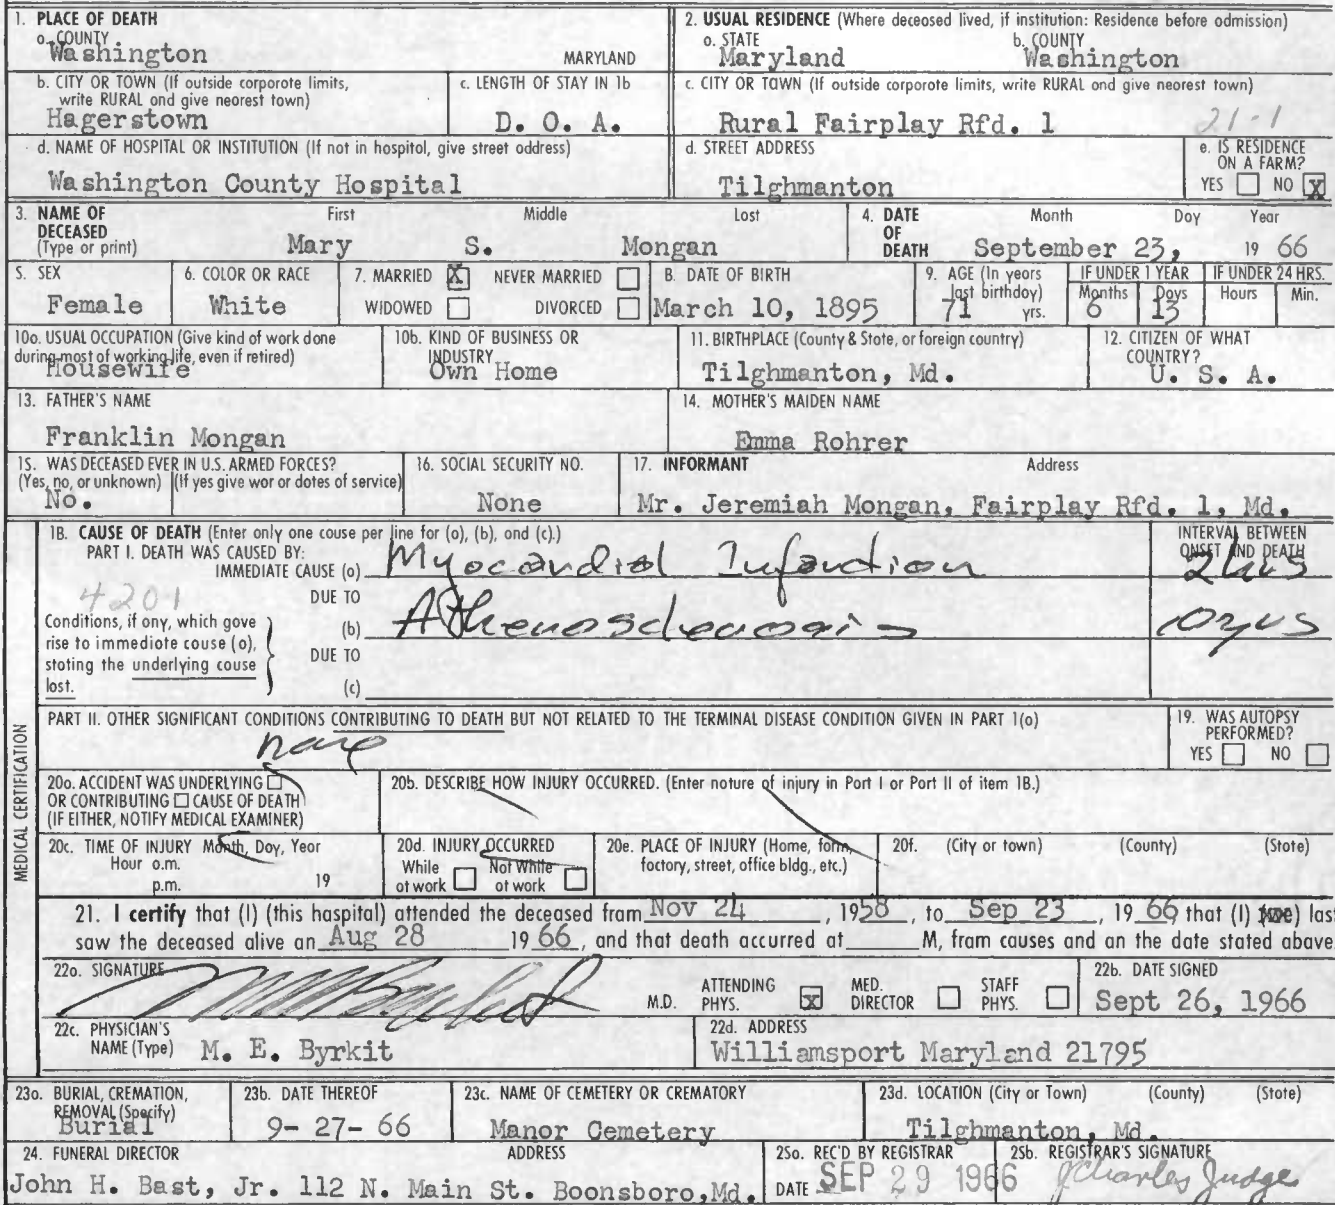 1. PLACE OF DEATH
a. COUNTY
Washington MARYLAND
2. USUAL RESIDENCE (Where deceased lived, if institution: Residence before admission)
a. STATE b. COUNTY
Maryland Washington
b. CITY OR TOWN (If outside corporate limits, write RURAL and give nearest town)
Hagerstown
c. LENGTH OF STAY IN 1b
D. O. A.
c. CITY OR TOWN (If outside corporate limits, write RURAL and give nearest town)
Rural Fairplay Rfd. 1 21-1
d. NAME OF HOSPITAL OR INSTITUTION (If not in hospital, give street address)
Washington County Hospital
d. STREET ADDRESS
Tilghmanton
e. IS RESIDENCE ON A FARM?
YES NO X
3. NAME OF DECEASED (Type or print)
First Middle Last
Mary S. Mongan
4. DATE OF DEATH
Month Day Year
September 23, 19 66
5. SEX
Female
6. COLOR OR RACE
White
7. MARRIED X NEVER MARRIED
WIDOWED DIVORCED
8. DATE OF BIRTH
March 10, 1895
9. AGE (In years last birthday)
71 yrs.
IF UNDER 1 YEAR
Months Days
6 13
IF UNDER 24 HRS.
Hours Min.
10a. USUAL OCCUPATION (Give kind of work done during most of working life, even if retired)
Housewife
10b. KIND OF BUSINESS OR INDUSTRY
Own Home
11. BIRTHPLACE (County & State, or foreign country)
Tilghmanton, Md.
12. CITIZEN OF WHAT COUNTRY?
U. S. A.
13. FATHER'S NAME
Franklin Mongan
14. MOTHER'S MAIDEN NAME
Emma Rohrer
15. WAS DECEASED EVER IN U.S. ARMED FORCES?
(Yes, no, or unknown) (If yes give war or dates of service)
No.
16. SOCIAL SECURITY NO.
None
17. INFORMANT Address
Mr. Jeremiah Mongan, Fairplay Rfd. 1, Md.
MEDICAL CERTIFICATION
18. CAUSE OF DEATH (Enter only one cause per line for (a), (b), and (c).)
PART I. DEATH WAS CAUSED BY:
IMMEDIATE CAUSE (a) Myocardial Infarction
INTERVAL BETWEEN ONSET AND DEATH
2hrs
4201
Conditions, if any, which gave rise to immediate cause (a), stating the underlying cause last.
DUE TO
(b) Atherosclerosis 10yrs
DUE TO
(c)
PART II. OTHER SIGNIFICANT CONDITIONS CONTRIBUTING TO DEATH BUT NOT RELATED TO THE TERMINAL DISEASE CONDITION GIVEN IN PART 1(a)
none
19. WAS AUTOPSY PERFORMED?
YES NO
20a. ACCIDENT WAS UNDERLYING
OR CONTRIBUTING CAUSE OF DEATH
(IF EITHER, NOTIFY MEDICAL EXAMINER)
20b. DESCRIBE HOW INJURY OCCURRED. (Enter nature of injury in Part I or Part II of item 18.)
20c. TIME OF INJURY Month, Day, Year
Hour a.m.
p.m. 19
20d. INJURY OCCURRED
While at work Not While at work
20e. PLACE OF INJURY (Home, farm, factory, street, office bldg., etc.)
20f. (City or town) (County) (State)
21. I certify that (I) (this hospital) attended the deceased from Nov 24, 1958, to Sep 23, 19 66 that (I) (we) last
saw the deceased alive on Aug 28 19 66, and that death occurred at M, from causes and on the date stated above
22a. SIGNATURE
M.D. ATTENDING PHYS. X MED. DIRECTOR STAFF PHYS.
22b. DATE SIGNED
Sept 26, 1966
22c. PHYSICIAN'S NAME (Type) M. E. Byrkit
22d. ADDRESS
Williamsport Maryland 21795
23a. BURIAL, CREMATION, REMOVAL (Specify)
Burial
23b. DATE THEREOF
9- 27- 66
23c. NAME OF CEMETERY OR CREMATORY
Manor Cemetery
23d. LOCATION (City or Town) (County) (State)
Tilghmanton, Md.
24. FUNERAL DIRECTOR ADDRESS
John H. Bast, Jr. 112 N. Main St. Boonsboro, Md.
25a. REC'D BY REGISTRAR
DATE SEP 29 1966
25b. REGISTRAR'S SIGNATURE
J Charles Judge